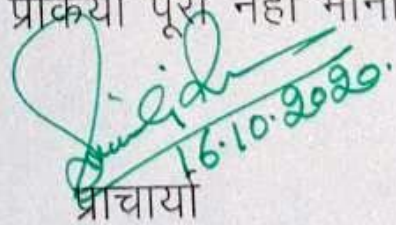 प्रक्रिया पूरी नहीं मानी
16.10.2020.
प्राचार्या